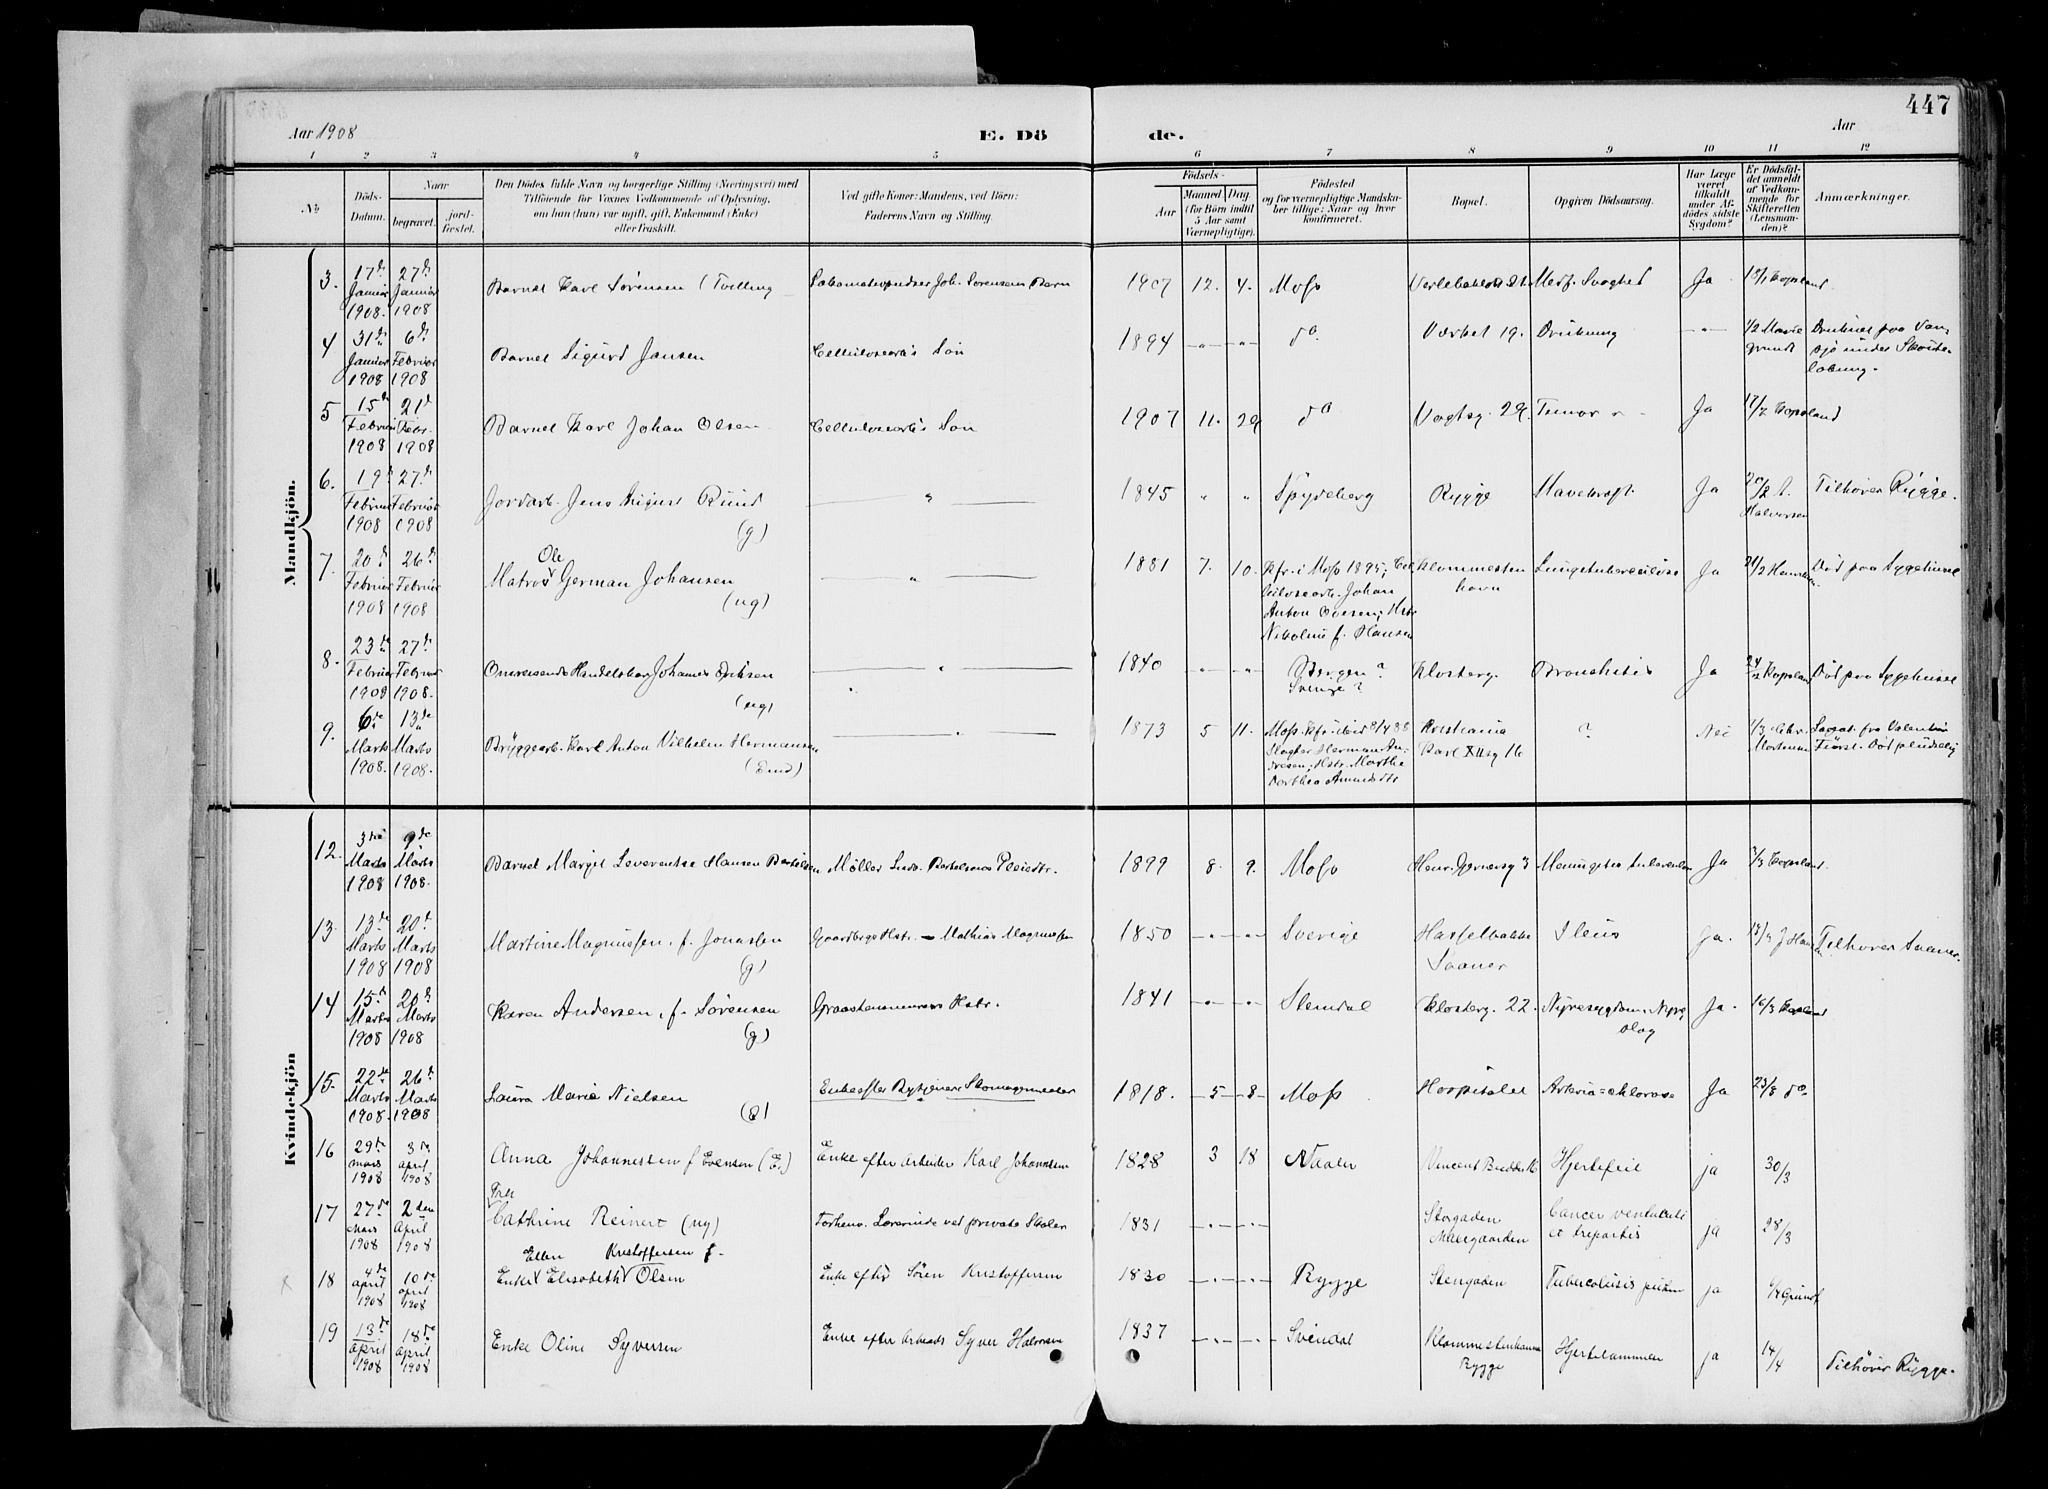 447
Aar 1908
E. Dö
de.
Aar
1 2 3 4 5 6 7 8 9 10 11 12
No
Döds-Datum.
Naar
begravet.
jord-fæstet.
Den Dödes fulde Navn og borgerlige Stilling (Næringsvei) med
Tilföiende for Voxnes Vedkommende af Oplysning,
om han (hun) var ugift, gift, Enkemand (Enke)
eller fraskilt.
Ved gifte Koner: Mandens, ved Börn:
Faderens Navn og Stilling.
Födsels-
Aar
Maaned Dag
(for Börn indtil
5 Aar samt
Værnepligtige).
Födested
og for værnepligtige Mandska-
ber tillige: Naar og hvor
konfirmeret.
Bopæl.
Opgiven Dödsaarsag.
Har Læge
været
tilkaldt
under Af-
dödes sidste
Sygdom?
Er Dödsfal-
det anmeldt
af Vedkom-
mende for
Skifteretten
(Lensman-
den)?
Anmærkninger.
Mandkjön.
3. 17de Januar 1908. 27de Januar 1908 Barnet Karl Sörensen (Tvilling Joh. Sörensens Barn 1907 12. 4. Moss Medf. Svaghed Ja Kopsland
4 31te Januar 1908 6te Februar 1908 Barnet Sigurd Jansen Cellulosearb's Sön 1894 -"- -"- do. Værket 19. Drukning -"- 1/2 Marie Grundt Druknet paa Van-
sjø under Skøite-
löbning.
5 15de Februar 1908 21de Febr. 1908 Barnet Karl Johan Olsen Cellulosearb's Sön 1907 11. 29 do Vogtsg. 29. Tumor Ja 17/2 Kopsland
6. 19de Februar 1908 27de Februar 1908 Jordarb. Jens August Ruud (g) " 1845 " " Spydeberg Rygge Mavekræft. Ja 20/2 A. Halvorsen Tilhörer Rygge.
7. 20de Februar 1908 26de Februar 1908 Matros Ole German Johansen (ug) " 1881 7. 10. Kfr. i Moss 1895; Cel
lulosearb. Johan
Anton Ovesen; Hstr
Nikoline f. Hansen Klommesten
havn Lungetuberculose Ja Död paa Sygehuset
8. 23de Februar 1908 27de Februar 1908. Omreisende Handelskar Johannes Eriksen (ug) " 1840 -"- -"- Bergen?
Sverige? Klosterg. Bronchitis Ja 24/2 Kopsland Död paa Sygehuset
9. 6te Marts 1908. 13de Marts 1908. Bryggearb. Karl Anton Vilhelm Hermansen (Enkd) " 1873 5 11. Moss. Kfr. ibid
Slagter Herman An-
dresen; Hstr. Marthe
Dorthea Amundsdtr Kristiania
Karl XII sg 16 ? Nei Chr. Mortensen Död pludselig
Kvindekjön
12. 3die Marts 1908 9de Marts 1908. Barnet Margit Leverentse Hansen Bertelsen Möller Ludv. Bertelsens Pleiedtr. 1899 8. 9. Moss Henr. Gernersg 3 Meningitis tuberculosa Ja Kopsland.
13. 13de Marts 1908 20de Marts 1908 Martine Magnussen, f. Jonassen (g) Gaardbrugs Hstr. - Mathias Magnussen 1850 -"- -"- Sverige Hasselbakke
Saaner Ileus Ja. Tilhörer Saaner.
14 15de Marts 1908 20de Marts 1908 Karen Andersen, f. Sörensen (g) Graastensmurers Hstr. 1841 -"- -"- Svendal Klosterg. 22. Nyresygdom, Nyre
slag Ja. 16/3 Kopsland
15. 22de Marts 1908. 26de Marts 1908 Laura Marie Nielsen (E) Enke efter Bytjener Skomagermester 1818. 5 8 Moss Hospitalet Arteria=sklerose Ja 23/3 do.
16 29de mars 1908 3de april 1908 Anna Johannessen f Evensen (E.) Enke efter Arbeider Karl Johannsen 1828 3 18 Vaaler Vincent Buddesg Hjertefeil ja 30/3
17 27de mars 1908 2den April 1908 Frk Cathrine Reinert (ug) Forhenv. Lærerinde ved private Skoler 1831 -"- -"- Storgaden Cancer ventriculi
et hepatis ja 28/3
18 4de april 1908 10de april 1908 Enke Ellen Elisabeth Kristoffersen f. Olsen Enke efter Sören Kristoffersen 1830 -"- -"- Rygge Storgaden Tuberculosis pulm ja 6/4 Grundt
19 13de april 1908 18de april 1908 Enke Oline Syversen Enke efter Arbeids Syver Halvorsen 1837 -"- -"- Svindal Klommestenhavn
Rygge Hjertelammelse ja 14/4 Tilhörer Rygge.